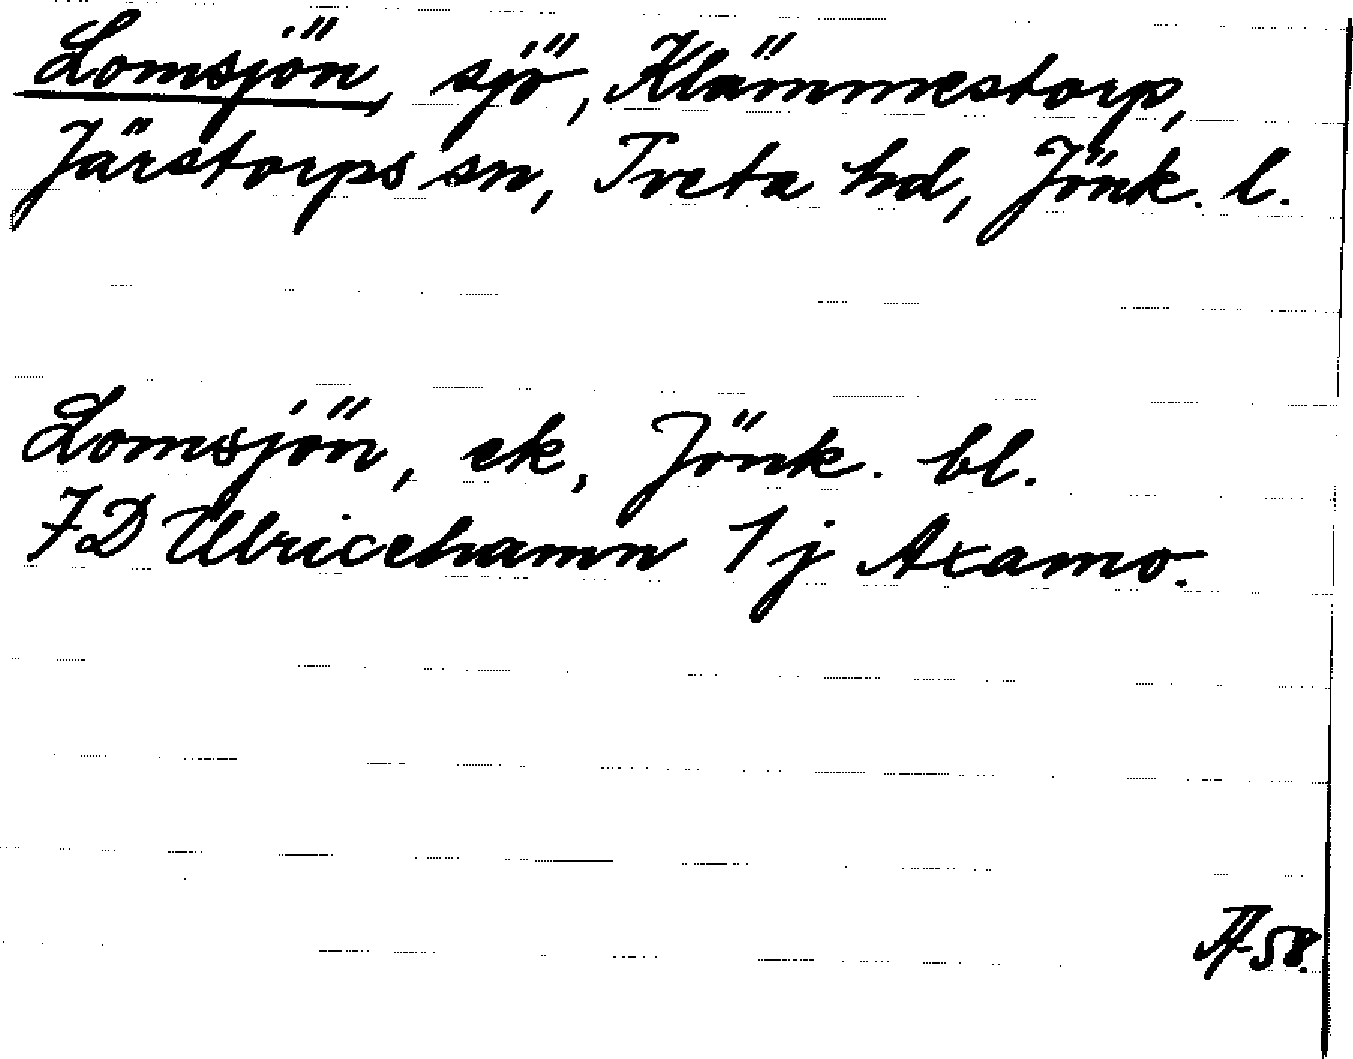 Lomsjön, sjö, Klämmestorp,
Järstorps sn, Tveta hd, Jönk. l.
Lomsjön, ek, Jönk. bl.
7D Ulricehamn 1j Axamo.
58.